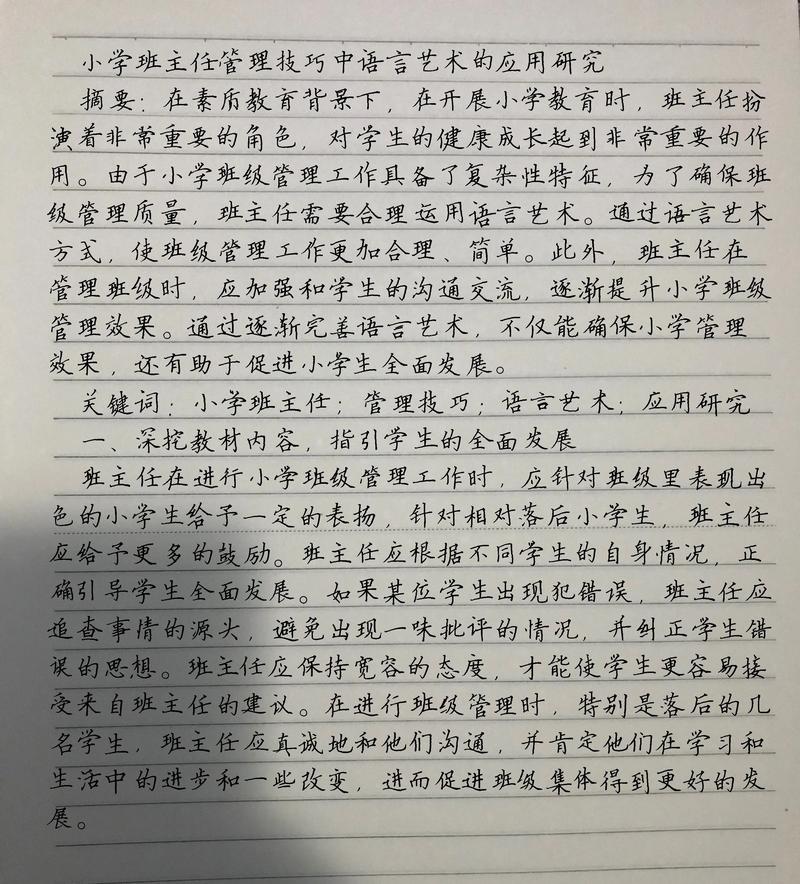 小学班主任管理技巧中语言艺术的应用研究
摘要：在素质教育背景下，在开展小学教育时，班主任扮
演着非常重要的角色，对学生的健康成长起到非常重要的作
用。由于小学班级管理工作具备了复杂性特征，为了确保班
级管理质量，班主任需要合理运用语言艺术。通过语言艺术
方式，使班级管理工作更加合理、简单。此外，班主任在
管理班级时，应加强和学生的沟通交流，逐渐提升小学班级
管理效果。通过逐渐完善语言艺术，不仅能确保小学管理
效果，还有助于促进小学生全面发展。
关键词；小学班主任；管理技巧；语言艺术；应用研究
一、深挖教材内容，指引学生的全面发展
班主任在进行小学班级管理工作时，应针对班级里表现出
色的小学生给予一定的表扬，针对相对落后小学生，班主任
应给予更多的鼓励。班主任应根据不同学生的自身情况，正
确引导学生全面发展。如果某位学生出现犯错误，班主任应
追查事情的源头，避免出现一味批评的情况，并纠正学生错
误的思想。班主任应保持宽容的态度，才能使学生更容易接
受来自班主任的建议。在进行班级管理时，特别是落后的几
名学生，班主任应真诚地和他们沟通，并肯定他们在学习和
生活中的进步和一些改变，进而促进班级集体得到更好的发
展。